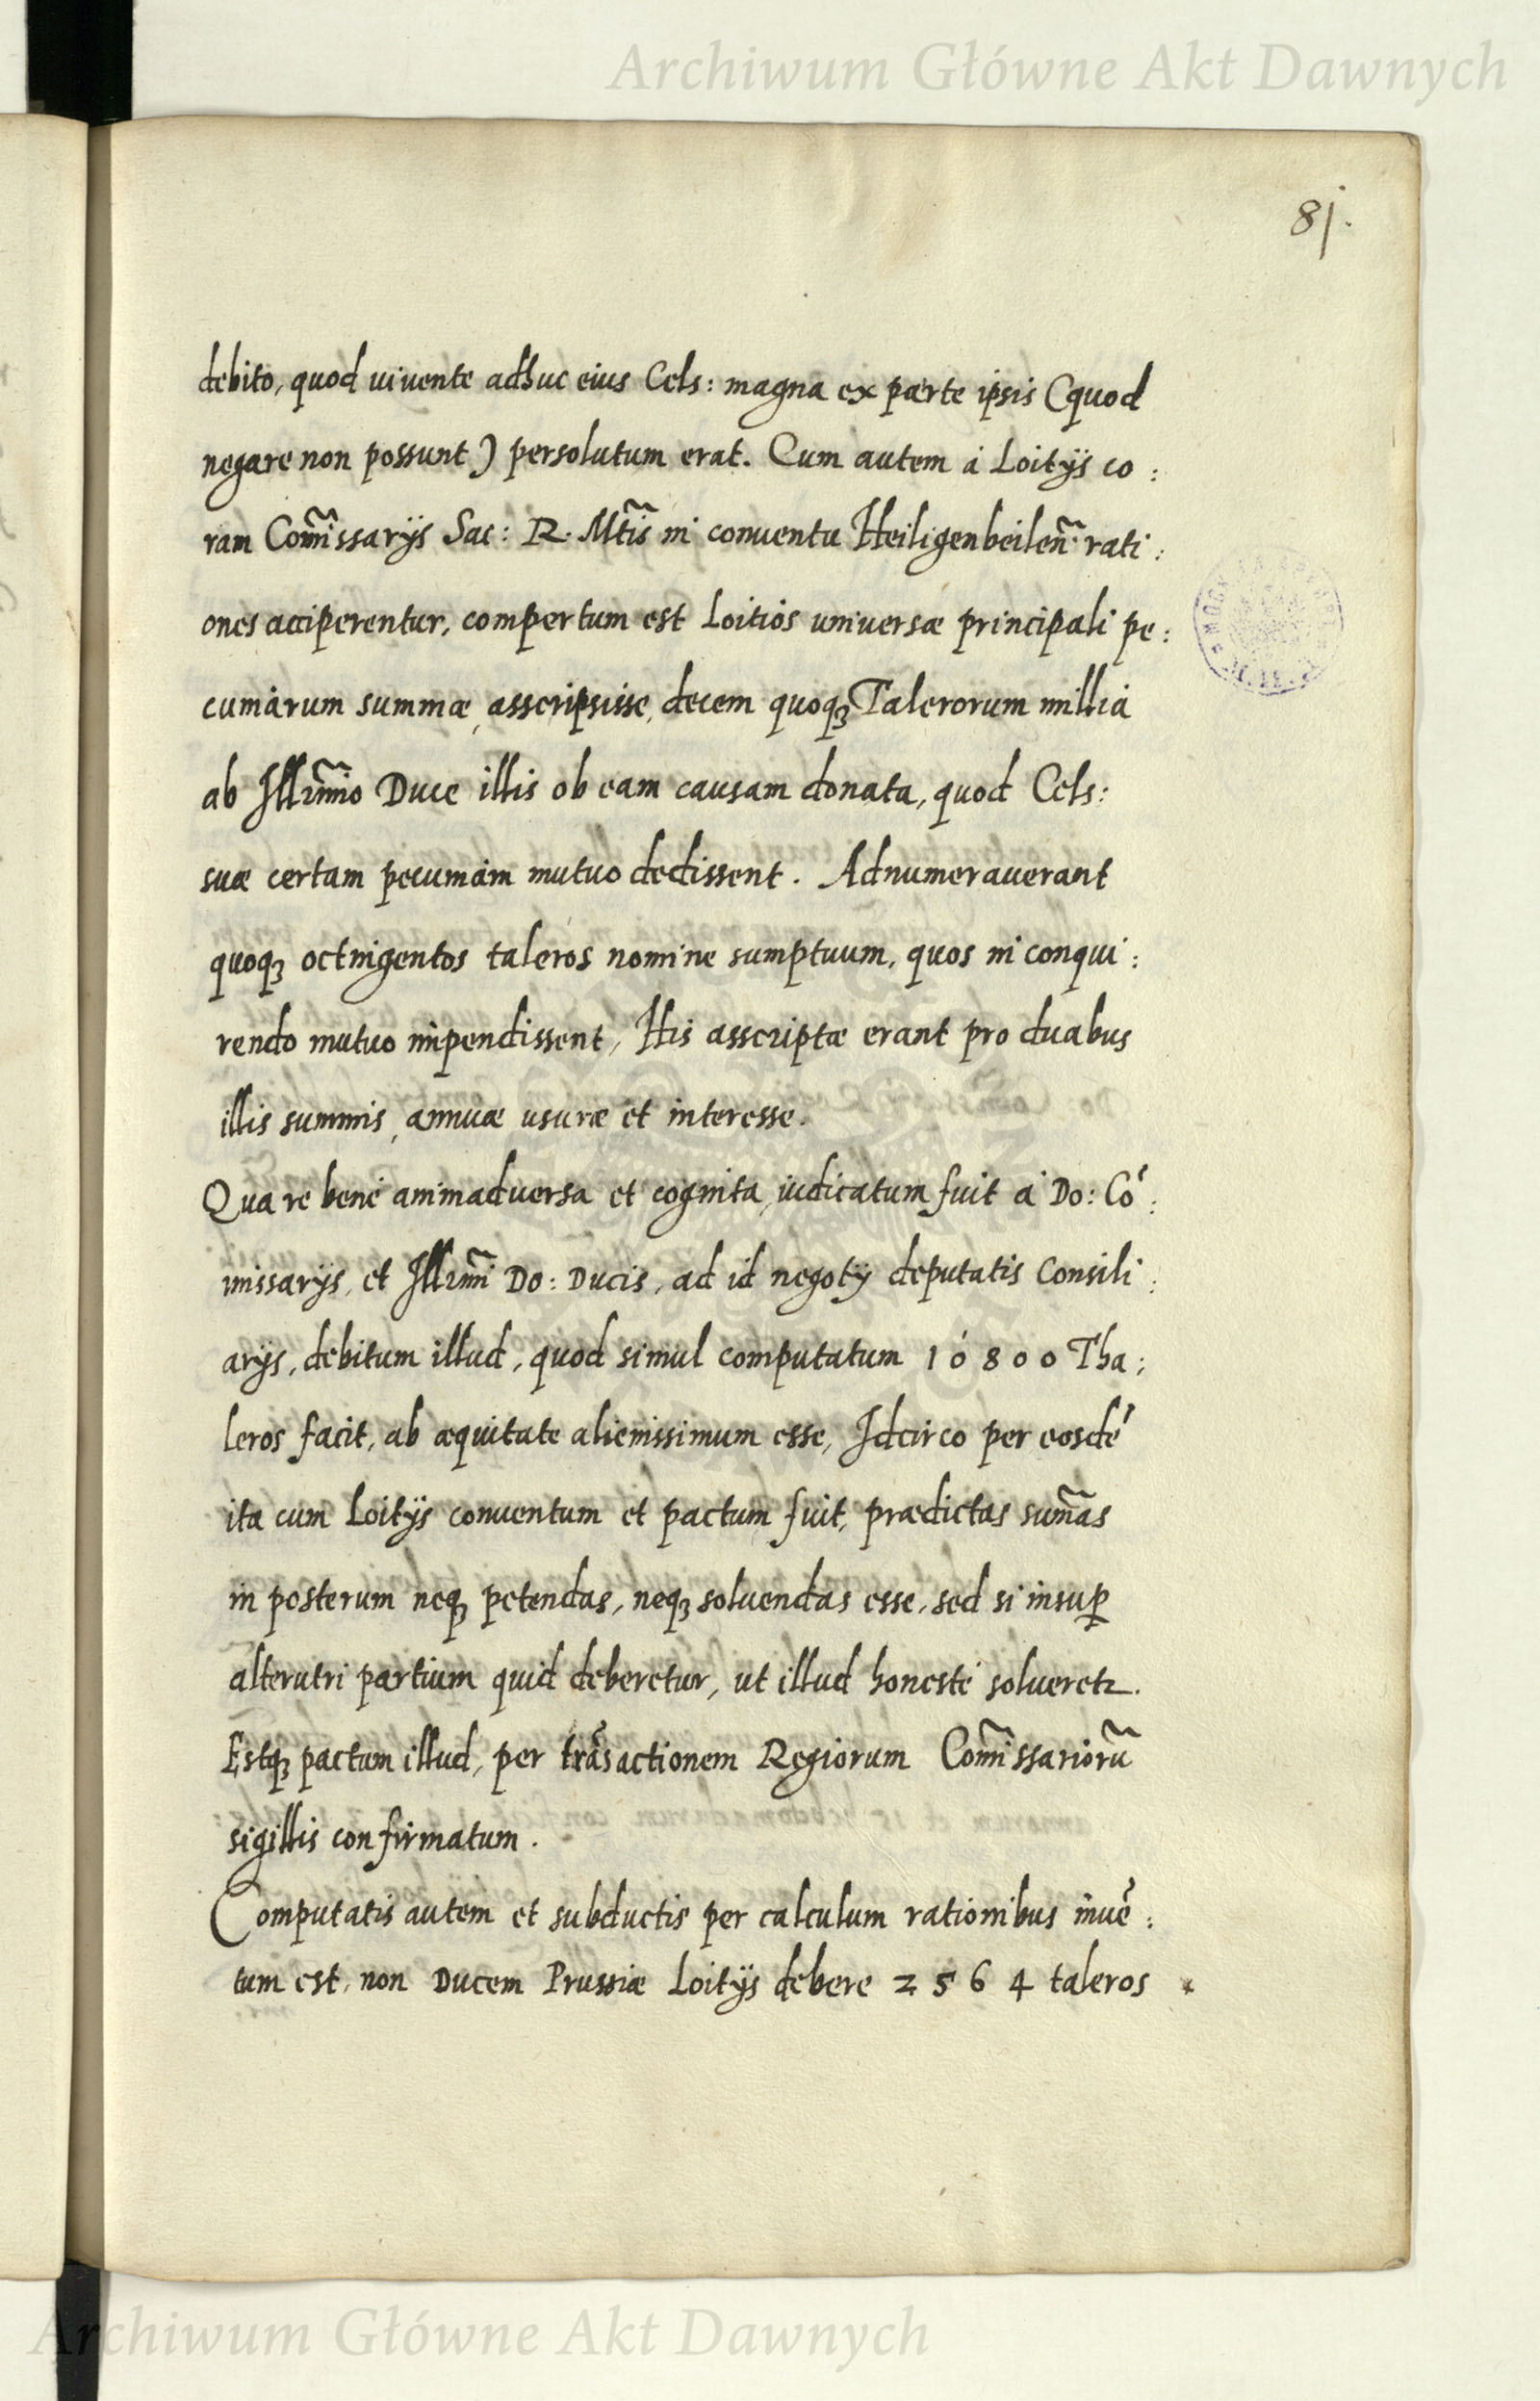 Archiwum Główne Akt Dawnych
81.
debito, quod uiuente adhuc eius Cels: magna ex parte ipsis (quod
negare non possunt) persolutum erat. Cum autem á Loitijs co:
ram Com̃issarijs Sac: R. Mt̃is in conuentu Heiligenbeileñ: rati:
ones acciperentur, compertum est Loitios uniuersæ principali pe:
cuniarum summæ, asscripsisse, decem quoqꝫ Talerorum millia
ab Illm̃o Duce illis ob eam causam donata, quod Cels:
suæ certam pecuniam mutuo dedissent. Adnumerauerant
quoqꝫ octingentos taleros nomine sumptuum, quos in conqui:
rendo mutuo impendissent, His asscriptæ erant pro duabus
illis summis, annuæ usuræ et interesse.
Qua re bené animaduersa et cognita, iudicatum fuit á Do: Cõ:
missarijs, et Illm̃i Do: Ducis, ad id negotij deputatis Consili:
arijs, debitum illud, quod simul computatum 10800 Tha:
leros facit, ab æquitate alienissimum esse, Idcirco per eosdẽ
ita cum Loitijs conuentum et pactum fuit, prædictas sum̃as
in posterum neqꝫ petendas, neqꝫ soluendas esse, sed si insuꝑ
alterutri partium quid deberetur, ut illud honesté solueretꝛ.
Estqꝫ pactum illud, per trãsactionem Regiorum Com̃issariorũ
sigillis confirmatum.
Computatis autem et subductis per calculum rationibus inuẽ:
tum est, non Ducem Prussiæ Loitijs debere 2564 taleros
Archiwum Główne Akt Dawnych